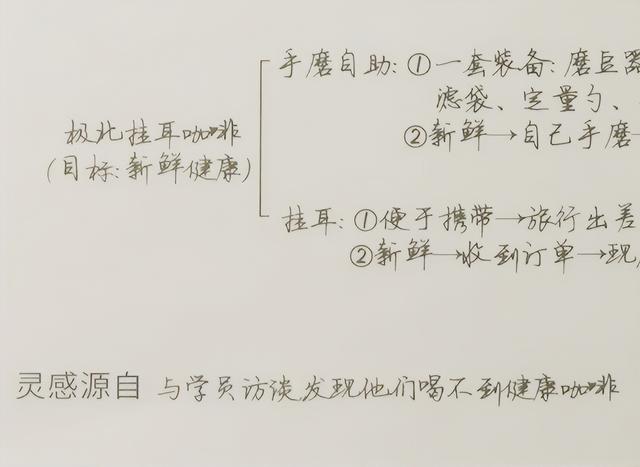 手磨自助:①一套装备:磨豆器
滤袋、定量勺、
②新鲜→自己手磨→
极北挂耳咖啡
(目标:新鲜健康)
挂耳:①便于携带→旅行出差
②新鲜→收到订单→现
灵感源自 与学员访谈,发现他们喝不到健康咖啡